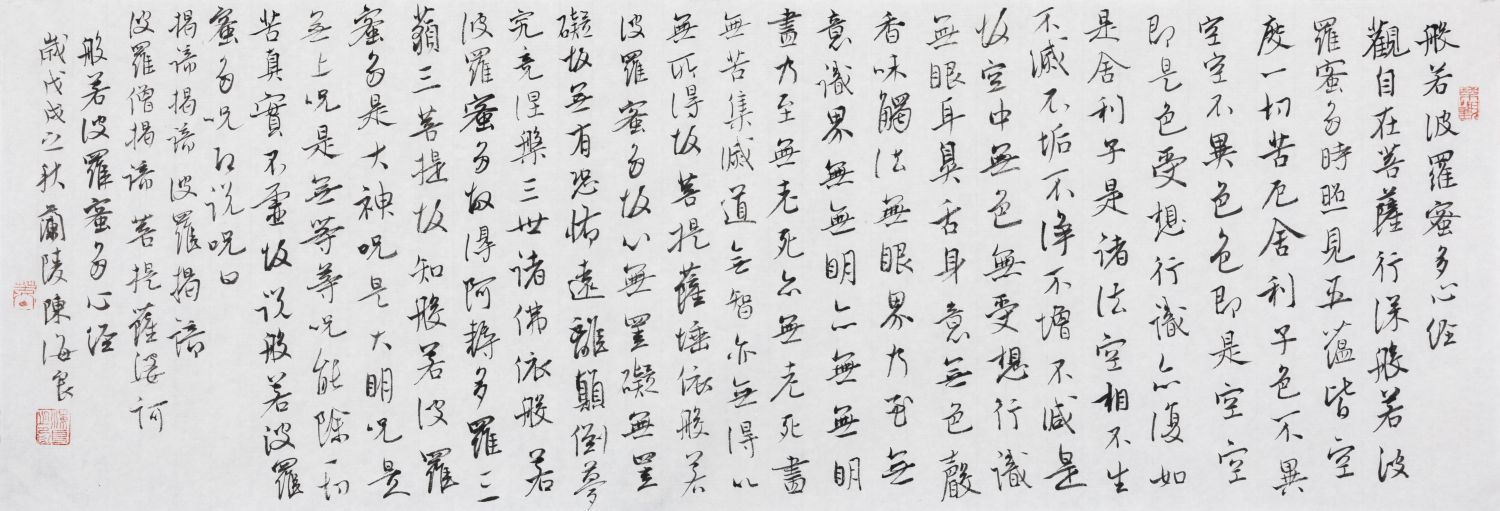 般若波羅蜜多心經
觀自在菩薩行深般若波
羅蜜多時照見五蘊皆空
度一切苦厄舍利子色不異
空空不異色色即是空空
即是色受想行識亦復如
是舍利子是諸法空相不生
不滅不垢不淨不增不減是
故空中無色無受想行識
無眼耳鼻舌身意無色聲
香味觸法無眼界乃至無
意識界無無明亦無無明
盡乃至無老死亦無老死盡
無苦集滅道無智亦無得以
無所得故菩提薩埵依般若
波羅蜜多故心無罣礙無罣
礙故無有恐怖遠離顛倒夢
究竟涅槃三世诸佛依般若
波羅蜜多故得阿耨多羅三
藐三菩提故知般若波羅
蜜多是大神呪是大明呪是
無上呪是無等等呪能除一切
苦真實不虛故说般若波羅
蜜多呪即说呪曰
揭諦揭諦波羅揭諦
波羅僧揭諦菩提薩婆訶
般若波羅蜜多心经
歲戊戌之秋蘭陵陳海良